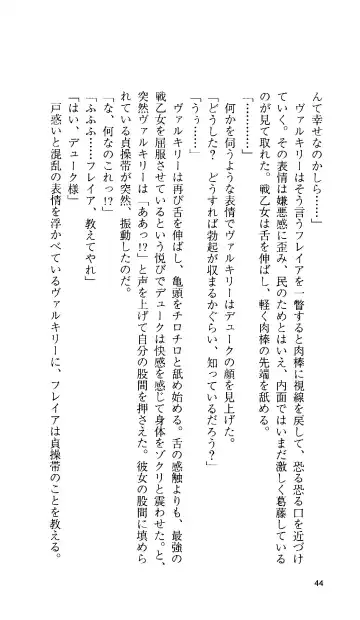 んて幸せなのかしら……」
ヴァルキリーはそう言うフレイアを一瞥すると肉棒に視線を戻して、恐る恐る口を近づけ
ていく。その表情は嫌悪感に歪み、民のためとはいえ、内面ではいまだ激しく葛藤している
のが見て取れた。戦乙女は舌を伸ばし、軽く肉棒の先端を舐める。
「…………」
何かを伺うような表情でヴァルキリーはデュークの顔を見上げた。
「どうした？　どうすれば勃起が収まるかぐらい、知っているだろう？」
「うぅ……」
ヴァルキリーは再び舌を伸ばし、亀頭をチロチロと舐め始める。舌の感触よりも、最強の
戦乙女を屈服させているという悦びでデュークは快感を感じて身体をゾクリと震わせた。と、
突然ヴァルキリーは「ああっ!?」と声を上げて自分の股間を押さえた。彼女の股間に填めら
れている貞操帯が突然、振動したのだ。
「な、何なのこれっ!?」
「ふふふ……フレイア、教えてやれ」
「はい、デューク様」
戸惑いと混乱の表情を浮かべているヴァルキリーに、フレイアは貞操帯のことを教える。
44